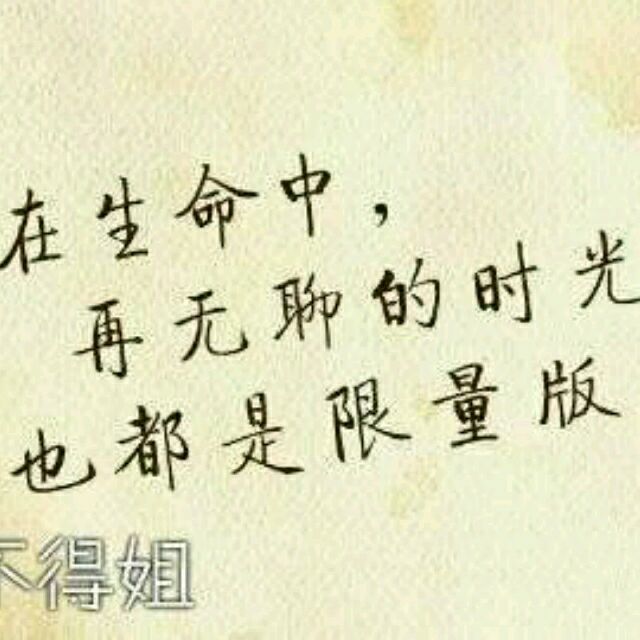 在生命中，
再无聊的时光
也都是限量版
不得姐